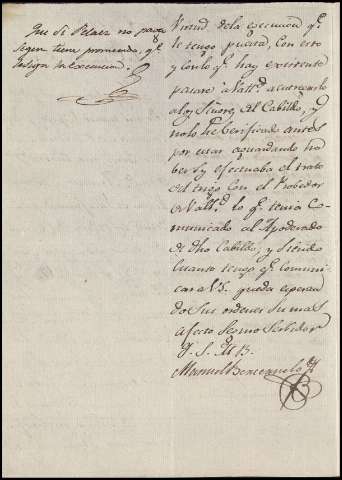 Que si Pelaez no paga
segun tiene prometido, qe
Virtud dela execucion qe
le tengo puesta, Con esto
y conlo qe. hay existente
pasaré à Valld. a
alos Señores del Cabildo, y
nolo he berificado antes
por estar aguardando ha
ber si efectuaba el trato
del trigo Con el Probedor
de Valld. lo qe. tenia Co-
municado al Apoderado
de dho Cabildo, y Siendo
Cuanto tengo qe. Comuni-
car a VS. queda esperan
do Sus ordenes Su mas
afecto Seguro Serbidor
Q. S. M. B.
Manuel